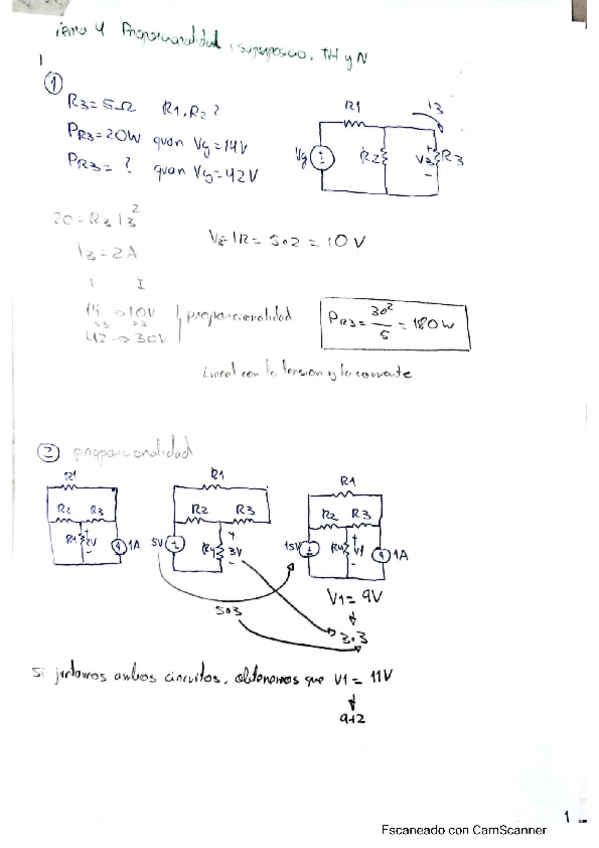 Tema 4 Proporcionalidad, superposicio, TH y N
1
R3=5Ω R1, R2?
PR3=20W quan Vg=14V
PR3= ? quan Vg=42V
R1 i3
Vg R2 + V3 - R3
20=R3 I3²
I3=2A
V3=IR= 5·2 = 10V
V I
14 → 10V
x3 x3
42 → 30V
proporcionalidad
PR3= 30²/5 = 180W
Lineal con la tension y la corriente
2 proporcionalidad
R1 R1 R1
R2 R3 R2 R3 R2 R3
R4 + 2V - 1A 5V R4 + 3V - 15V R4 + V1 - 1A
V1= 9V
5·3
3·3
Si juntamos ambos circuitos, obtenemos que V1 = 11V
9+2
1
Escaneado con CamScanner